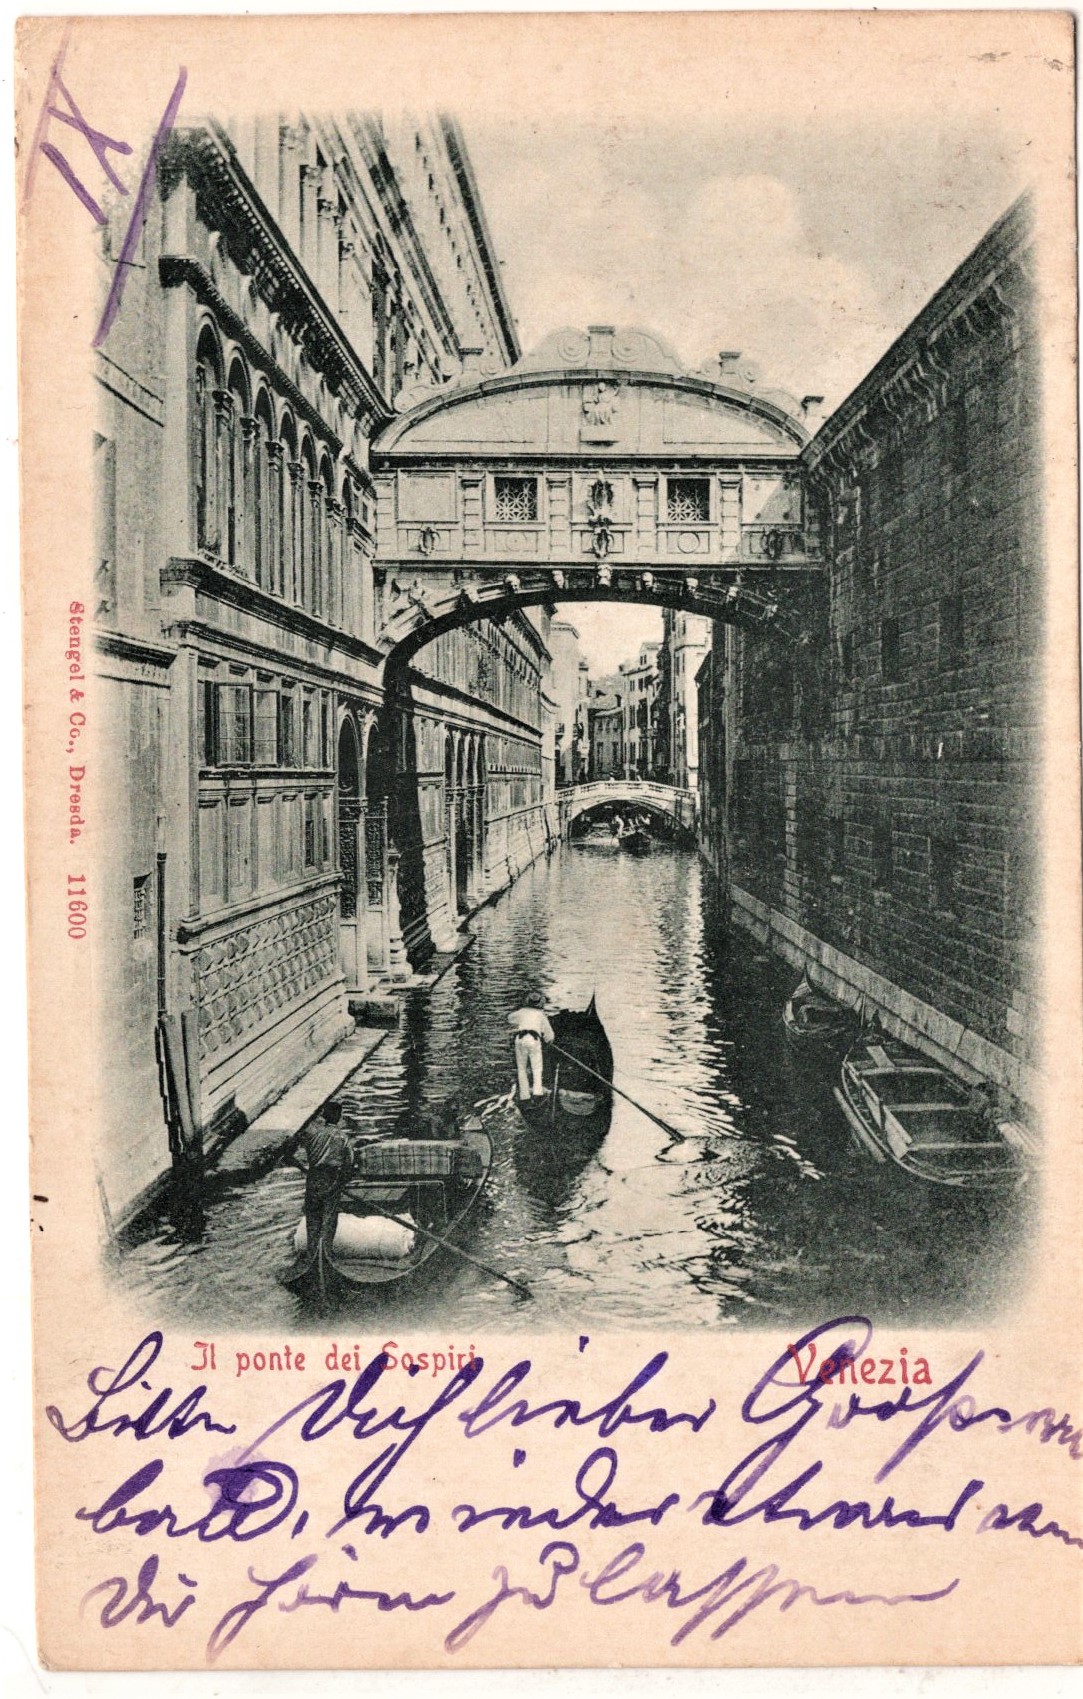 IX
Stengel & Co., Dresda. 11600
Il ponte dei Sospiri
Venezia
Bitte Dich lieber
bald, wieder etwas von
Dir hören zu lassen